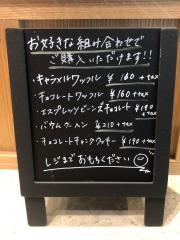 お好きな組み合わせで
ご購入いただけます!!
・キャラメルワッフル ¥160+tax
・チョコレートワッフル ¥160+tax
・エスプレッソビーンズチョコレート ¥190+tax
・バウムクーヘン ¥210+tax
・チョコレートチャンククッキー ¥190+tax
レジまでおもちください